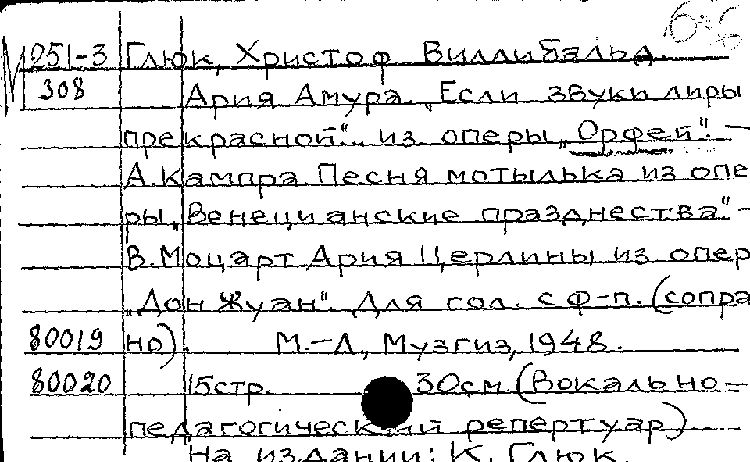 М251-3 Глюк, Христоф Виллибальд.
308 Ария Амура „Если звуки лиры
прекрасной“.. из оперы „Орфей“.—
А.Кампра. Песня мотылька из опе
ры „Венецианские празднества“.-
В.Моцарт Ария Церлины из опер
„Дон Жуан“. Для гол. с ф-п. (сопра
80019 но). М.-Л, Музгиз, 1948.
80020 15стр. 30см (Вокально-
педагогический репертуар)
На издании: К. Глюк.